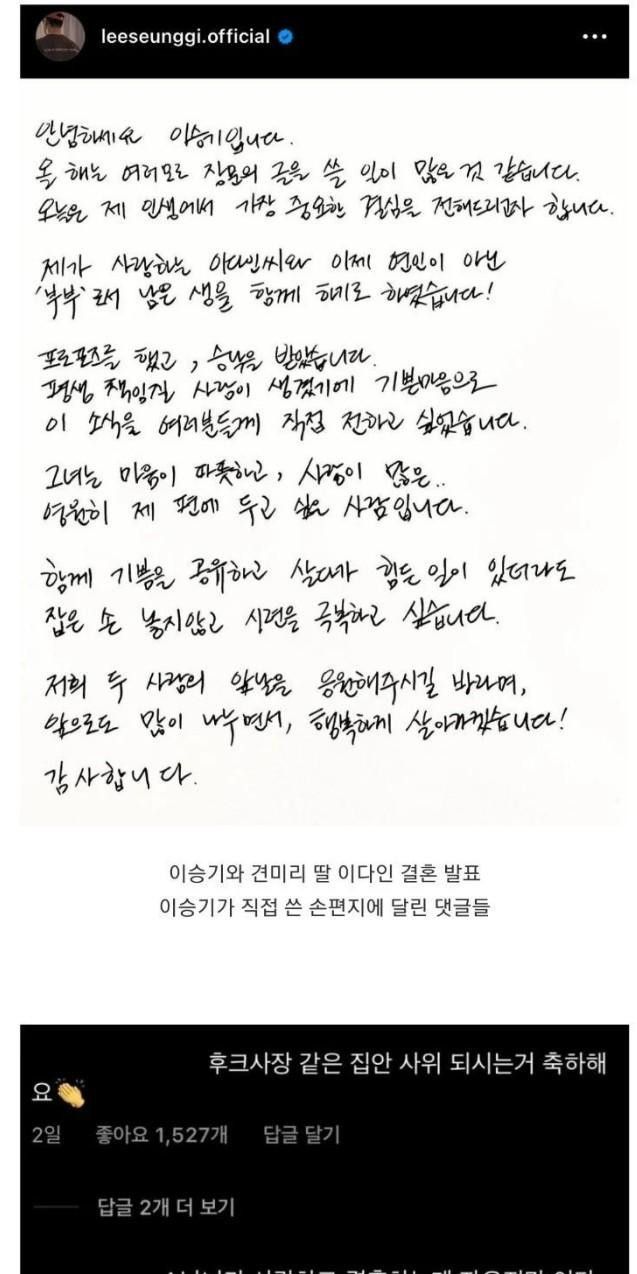 leeseunggi.official
안녕하세요 이승기입니다.
올 해는 여러모로 장문의 글을 쓸 일이 많은 것 같습니다.
오늘은 제 인생에서 가장 중요한 결심을 전해드리고자 합니다.
제가 사랑하는 이다인씨와 이제 연인이 아닌
'부부'로서 남은 생을 함께 하기로 하였습니다!
프로포즈를 했고, 승낙을 받았습니다.
평생 책임질 사람이 생겼기에 기쁜마음으로
이 소식을 여러분들께 직접 전하고 싶었습니다.
그녀는 마음이 따뜻하고, 사랑이 많은..
영원히 제 편에 두고 싶은 사람입니다.
함께 기쁨을 공유하고 살다가 힘든 일이 있더라도
잡은 손 놓지않고 시련을 극복하고 싶습니다.
저희 두 사람의 앞날을 응원해주시길 바라며,
앞으로도 많이 나누면서, 행복하게 살아가겠습니다!
감사합니다.
이승기와 견미리 딸 이다인 결혼 발표
이승기가 직접 쓴 손편지에 달린 댓글들
후크사장 같은 집안 사위 되시는거 축하해
요👏
2일 좋아요 1,527개 답글 달기
답글 2개 더 보기